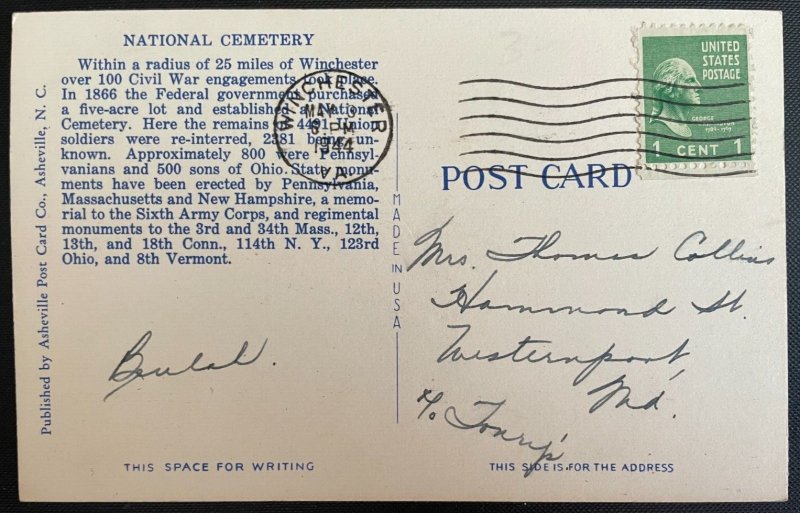 NATIONAL CEMETERY
Within a radius of 25 miles of Winchester
over 100 Civil War engagements took place.
In 1866 the Federal government purchased
a five-acre lot and established a National
Cemetery. Here the remains of 4491 Union
soldiers were re-interred, 2381 being un-
known. Approximately 800 were Pennsyl-
vanians and 500 sons of Ohio. State monu-
ments have been erected by Pennsylvania,
Massachusetts and New Hampshire, a memo-
rial to the Sixth Army Corps, and regimental
monuments to the 3rd and 34th Mass., 12th,
13th, and 18th Conn., 114th N. Y., 123rd
Ohio, and 8th Vermont.
Published by Asheville Post Card Co., Asheville, N. C.
Beulah.
THIS SPACE FOR WRITING
WINCHESTER
PM
1944
VA
MADE IN USA
UNITED
STATES
POSTAGE
GEORGE
1 CENT 1
POST CARD
Mrs. Thomas Collins
Hammond St.
Westernport,
Md.
THIS SIDE IS FOR THE ADDRESS